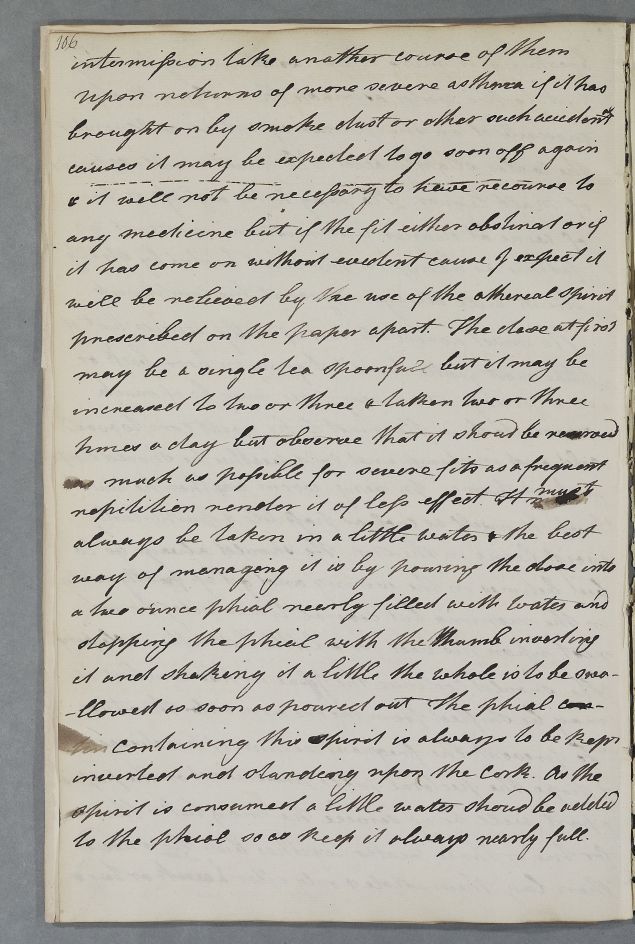 106
intermission take another course of them
upon returns of more severe asthma if it has
brought on by smoke dust or other such accident^al
causes it may be expected to go soon off again
& it will not be necessary to have recourse to
any medicine but if the fit either obstinat or if
it has come on without evedent cause I expect it
will be relieved by the use of the athereal spirit
prescribed on the paper apart. The dose at first
may be a single tea spoonfull but it may be
increased to two or three & taken two or three
times a day but observe that it should be reserved
as much as possible for severe fits as a frequent
repitition render it of less effect. It must
always be taken in a little water & the best
way of managing it is by pouring the dose into
a two ounce phial nearly filled with water and
stopping the phial with the thumb inverting
it and shaking it a little the whole is to be swa-
-llowed as soon as poured out The phial con-
containing this spirit is always to be kept
inverted and standing upon the cork. As the
spirit is consumed a little water should be added
to the phial so as keep it always nearly full.